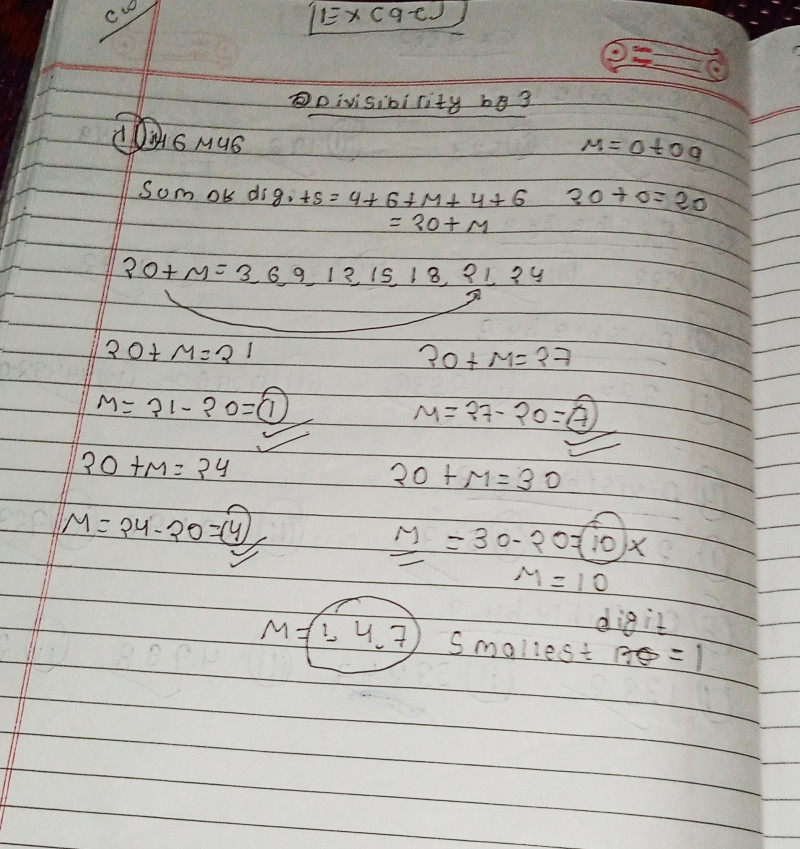 CW
Ex C9-e
Divisibility by 3
1) i) 46M46 M=0 to 9
Sum of digits = 4+6+M+4+6 20+0=20
= 20+M
20+M=3, 6, 9, 12, 15, 18, 21, 24
20+M=21 20+M=27
M=21-20=1 M=27-20=7
20+M=24 20+M=30
M=24-20=4 M=30-20=10 x
M=10
M=1, 4, 7 Smallest digit = 1